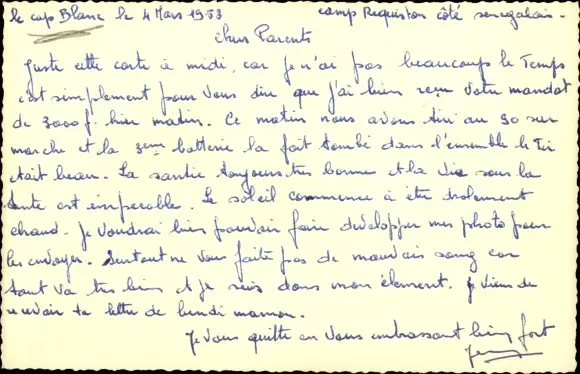 le cap Blanc le 4 Mars 1953 camp Requiston côté senegalais.
chers Parents
Juste cette carte à midi, car je n'ai pas beaucoup le Temps
c'est simplement pour vous dire que j'ai bien reçu votre mandat
de 3000 f. hier matin. Ce matin nous avons tiré au 30 sur
marche et la 3eme batterie la fait tombé dans l'ensemble le Tir
était beau. La santée toujours tres bonne et la vie sous la
tente est impecable. Le soleil commence à etre drolement
chaud. je voudrai bien pouvoir faire developper mes photo pour
les envoyer. Surtout ne vous faite pas de mauvais sang car
tout va tres bien et je suis dans mon élement. je viens de
recevoir ta lettre de lundi maman.
je vous quitte en vous embrassant bien fort